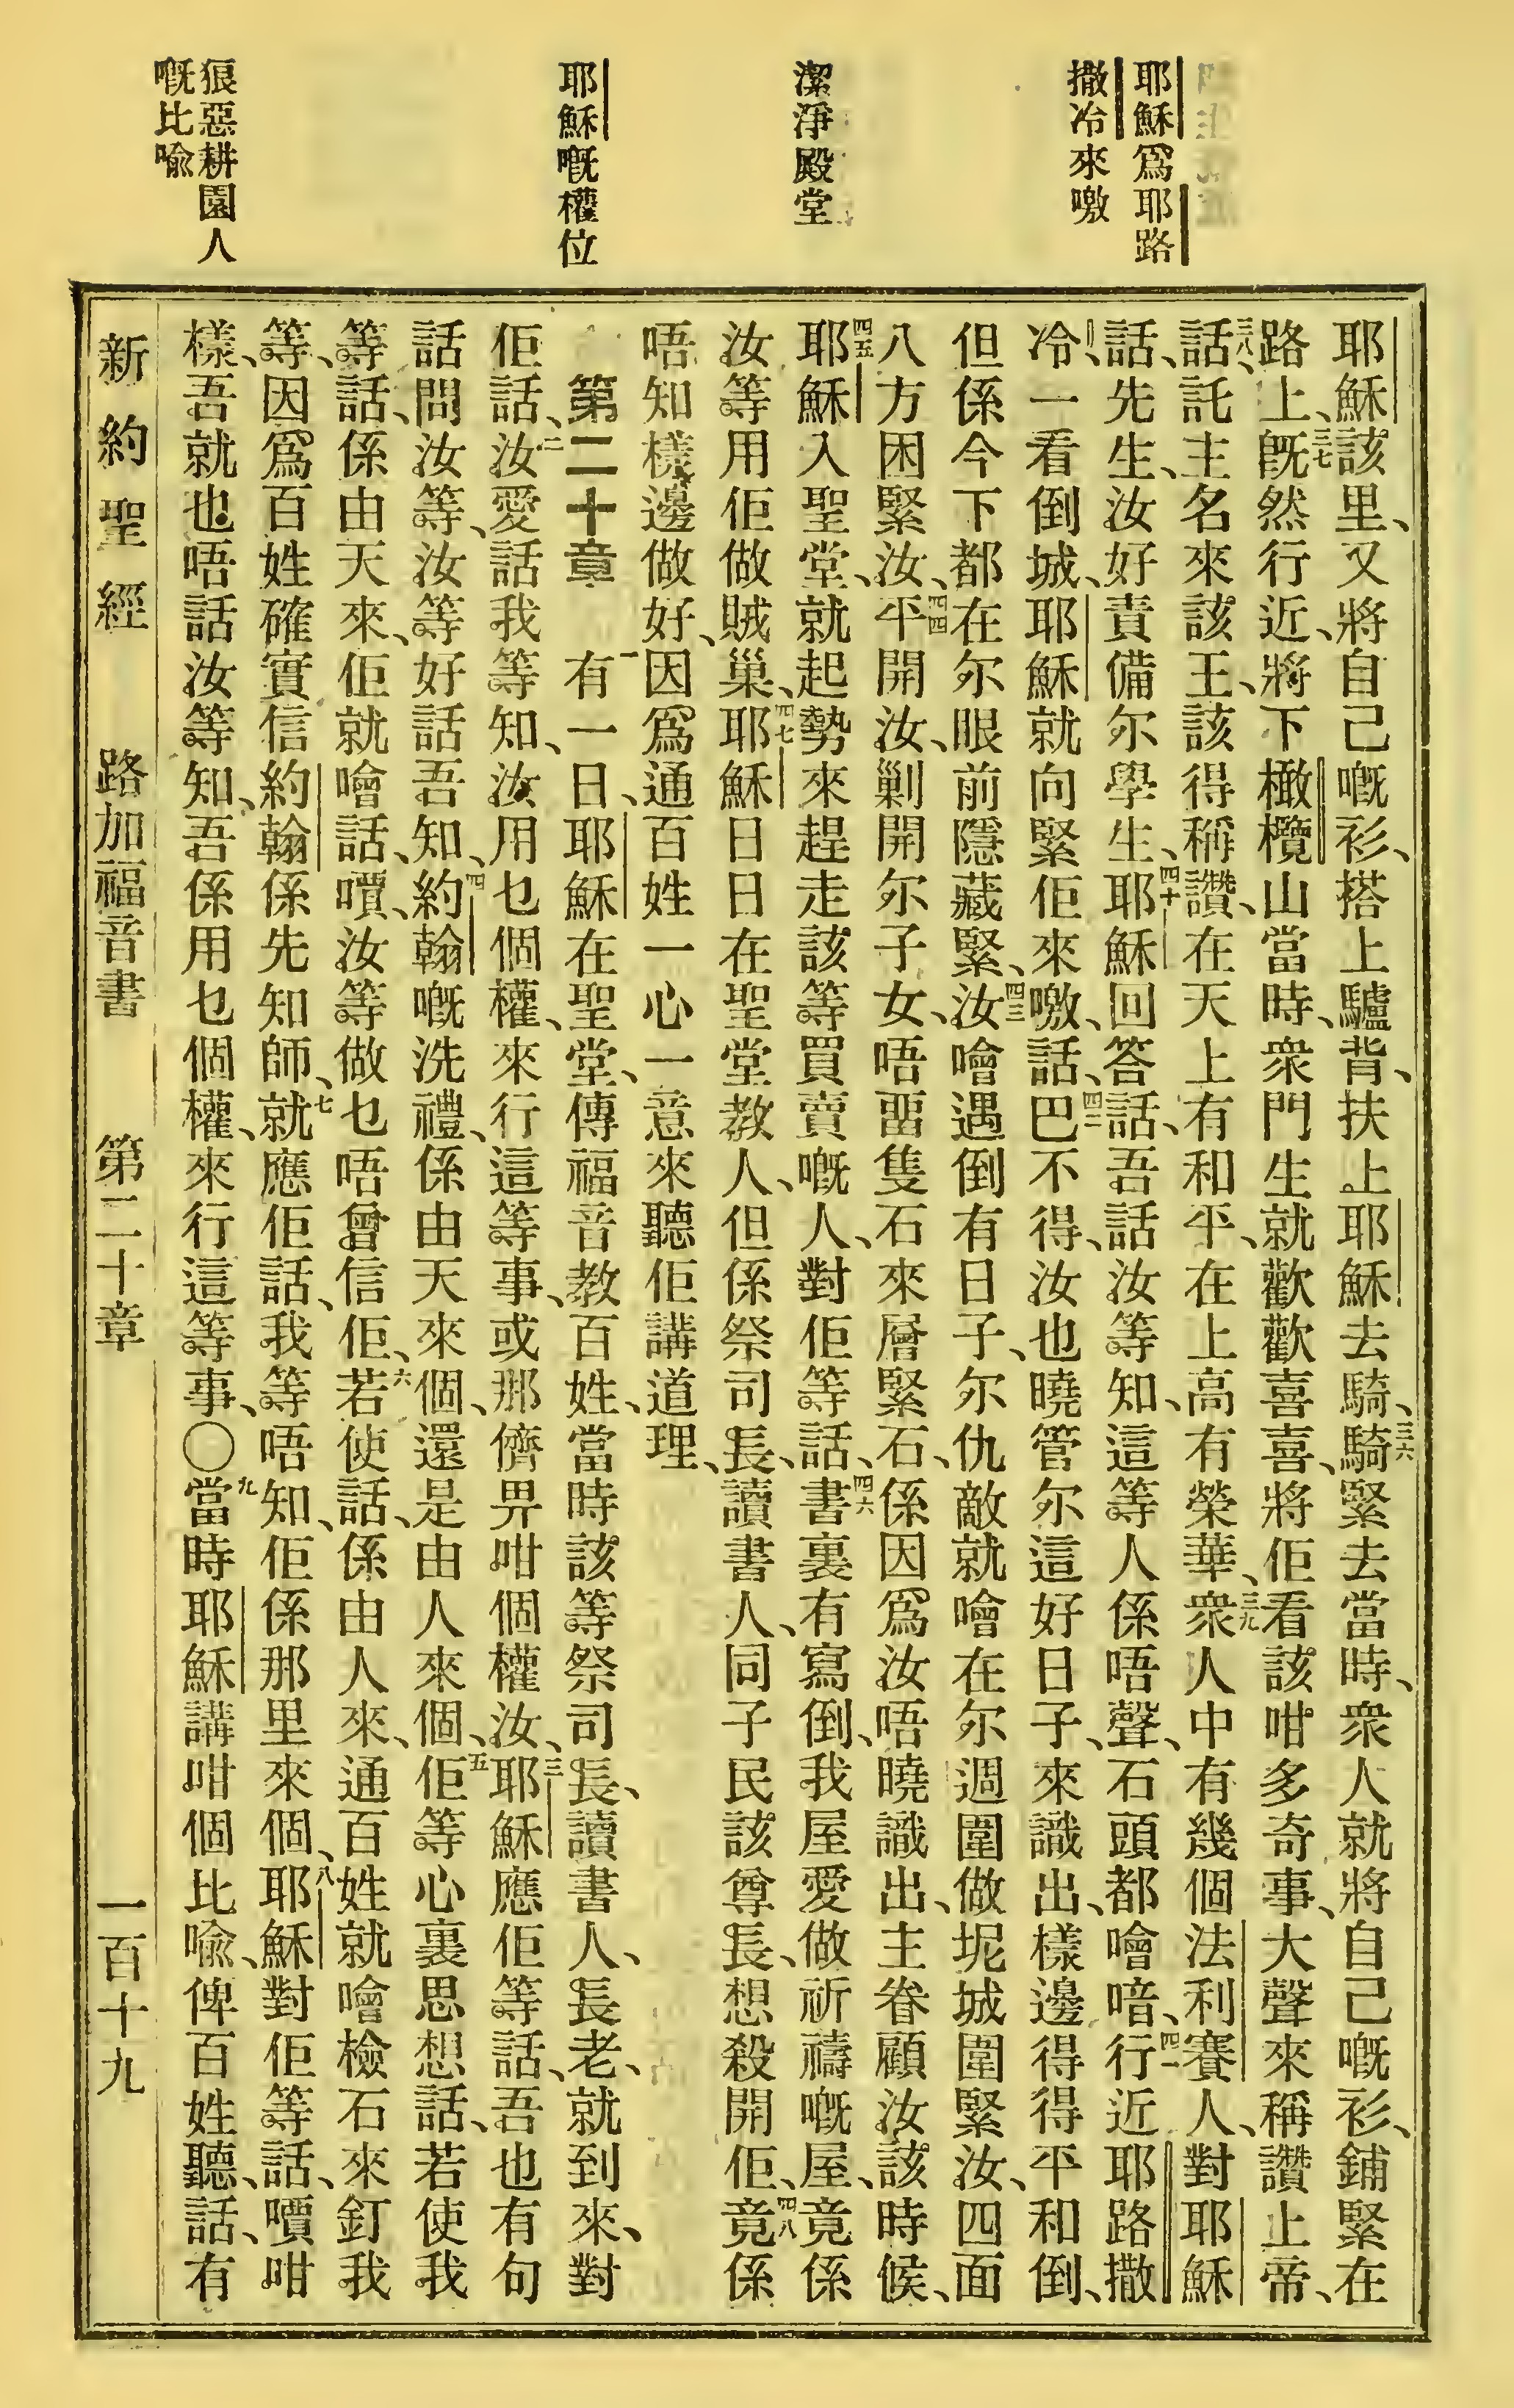 耶穌爲耶路
撒冷來噭
潔淨殿堂
耶穌嘅權位
狠惡耕園人
嘅比喩
耶穌該里、又將自己嘅衫、搭上驢背、扶上耶穌去騎、三六騎緊去當時、衆人就將自己嘅衫、鋪緊在
路上、三七旣然行近、將下橄欖山當時、衆門生就歡歡喜喜、將佢看該咁多奇事、大聲來稱讚上帝、
三八話、託主名來該王、該得稱讚、在天上有和平、在上高有榮華、三九衆人中有幾個法利賽人、對耶穌
話、先生、汝好責備尔學生、四十耶穌回答話、吾話汝等知、這等人係唔聲、石頭都噲喑、四一行近耶路撒
冷、一看倒城、耶穌就向緊佢來噭、話、四二巴不得、汝也曉管尔這好日子、來識出、樣邊得得平和倒、
但係今下都在尔眼前隱藏緊、四三汝噲遇倒有日子、尔仇敵就噲在尔週圍做坭城圍緊汝、四面
八方困緊汝、四四平開汝、剿開尔子女、唔畱隻石來層緊石、係因爲汝唔曉識出、主眷顧汝該時候、
四五耶穌入聖堂、就起勢來趕走該等買賣嘅人、對佢等話、四六書裏有寫倒、我屋愛做祈禱嘅屋、竟係
汝等用佢做賊巢、四七耶穌日日在聖堂教人、但係祭司長、讀書人、同子民該尊長、想殺開佢、四八竟係
唔知樣邊做好、因爲通百姓一心一意來聽佢講道理、
第二十章 一有一日、耶穌在聖堂、傳福音教百姓、當時該等祭司長、讀書人、長老、就到來、對
佢話、二汝愛話我等知、汝用乜個權、來行這等事、或那儕畀咁個權汝、三耶穌應佢等話、吾也有句
話問汝等、汝等好話吾知、四約翰嘅洗禮、係由天來個、還是由人來個、五佢等心裏思想話、若使我
等話、係由天來、佢就噲話、嘳、汝等做乜唔曾信佢、六若使話、係由人來、通百姓就噲檢石來釘我
等、因爲百姓確實信約翰係先知師、七就應佢話、我等唔知、佢係那里來個、八耶穌對佢等話、嘳咁
樣、吾就也唔話汝等知、吾係用乜個權、來行這等事、〇九當時耶穌講咁個比喩、俾百姓聽、話、有
新約聖經 路加福音書 第二十章 一百十九